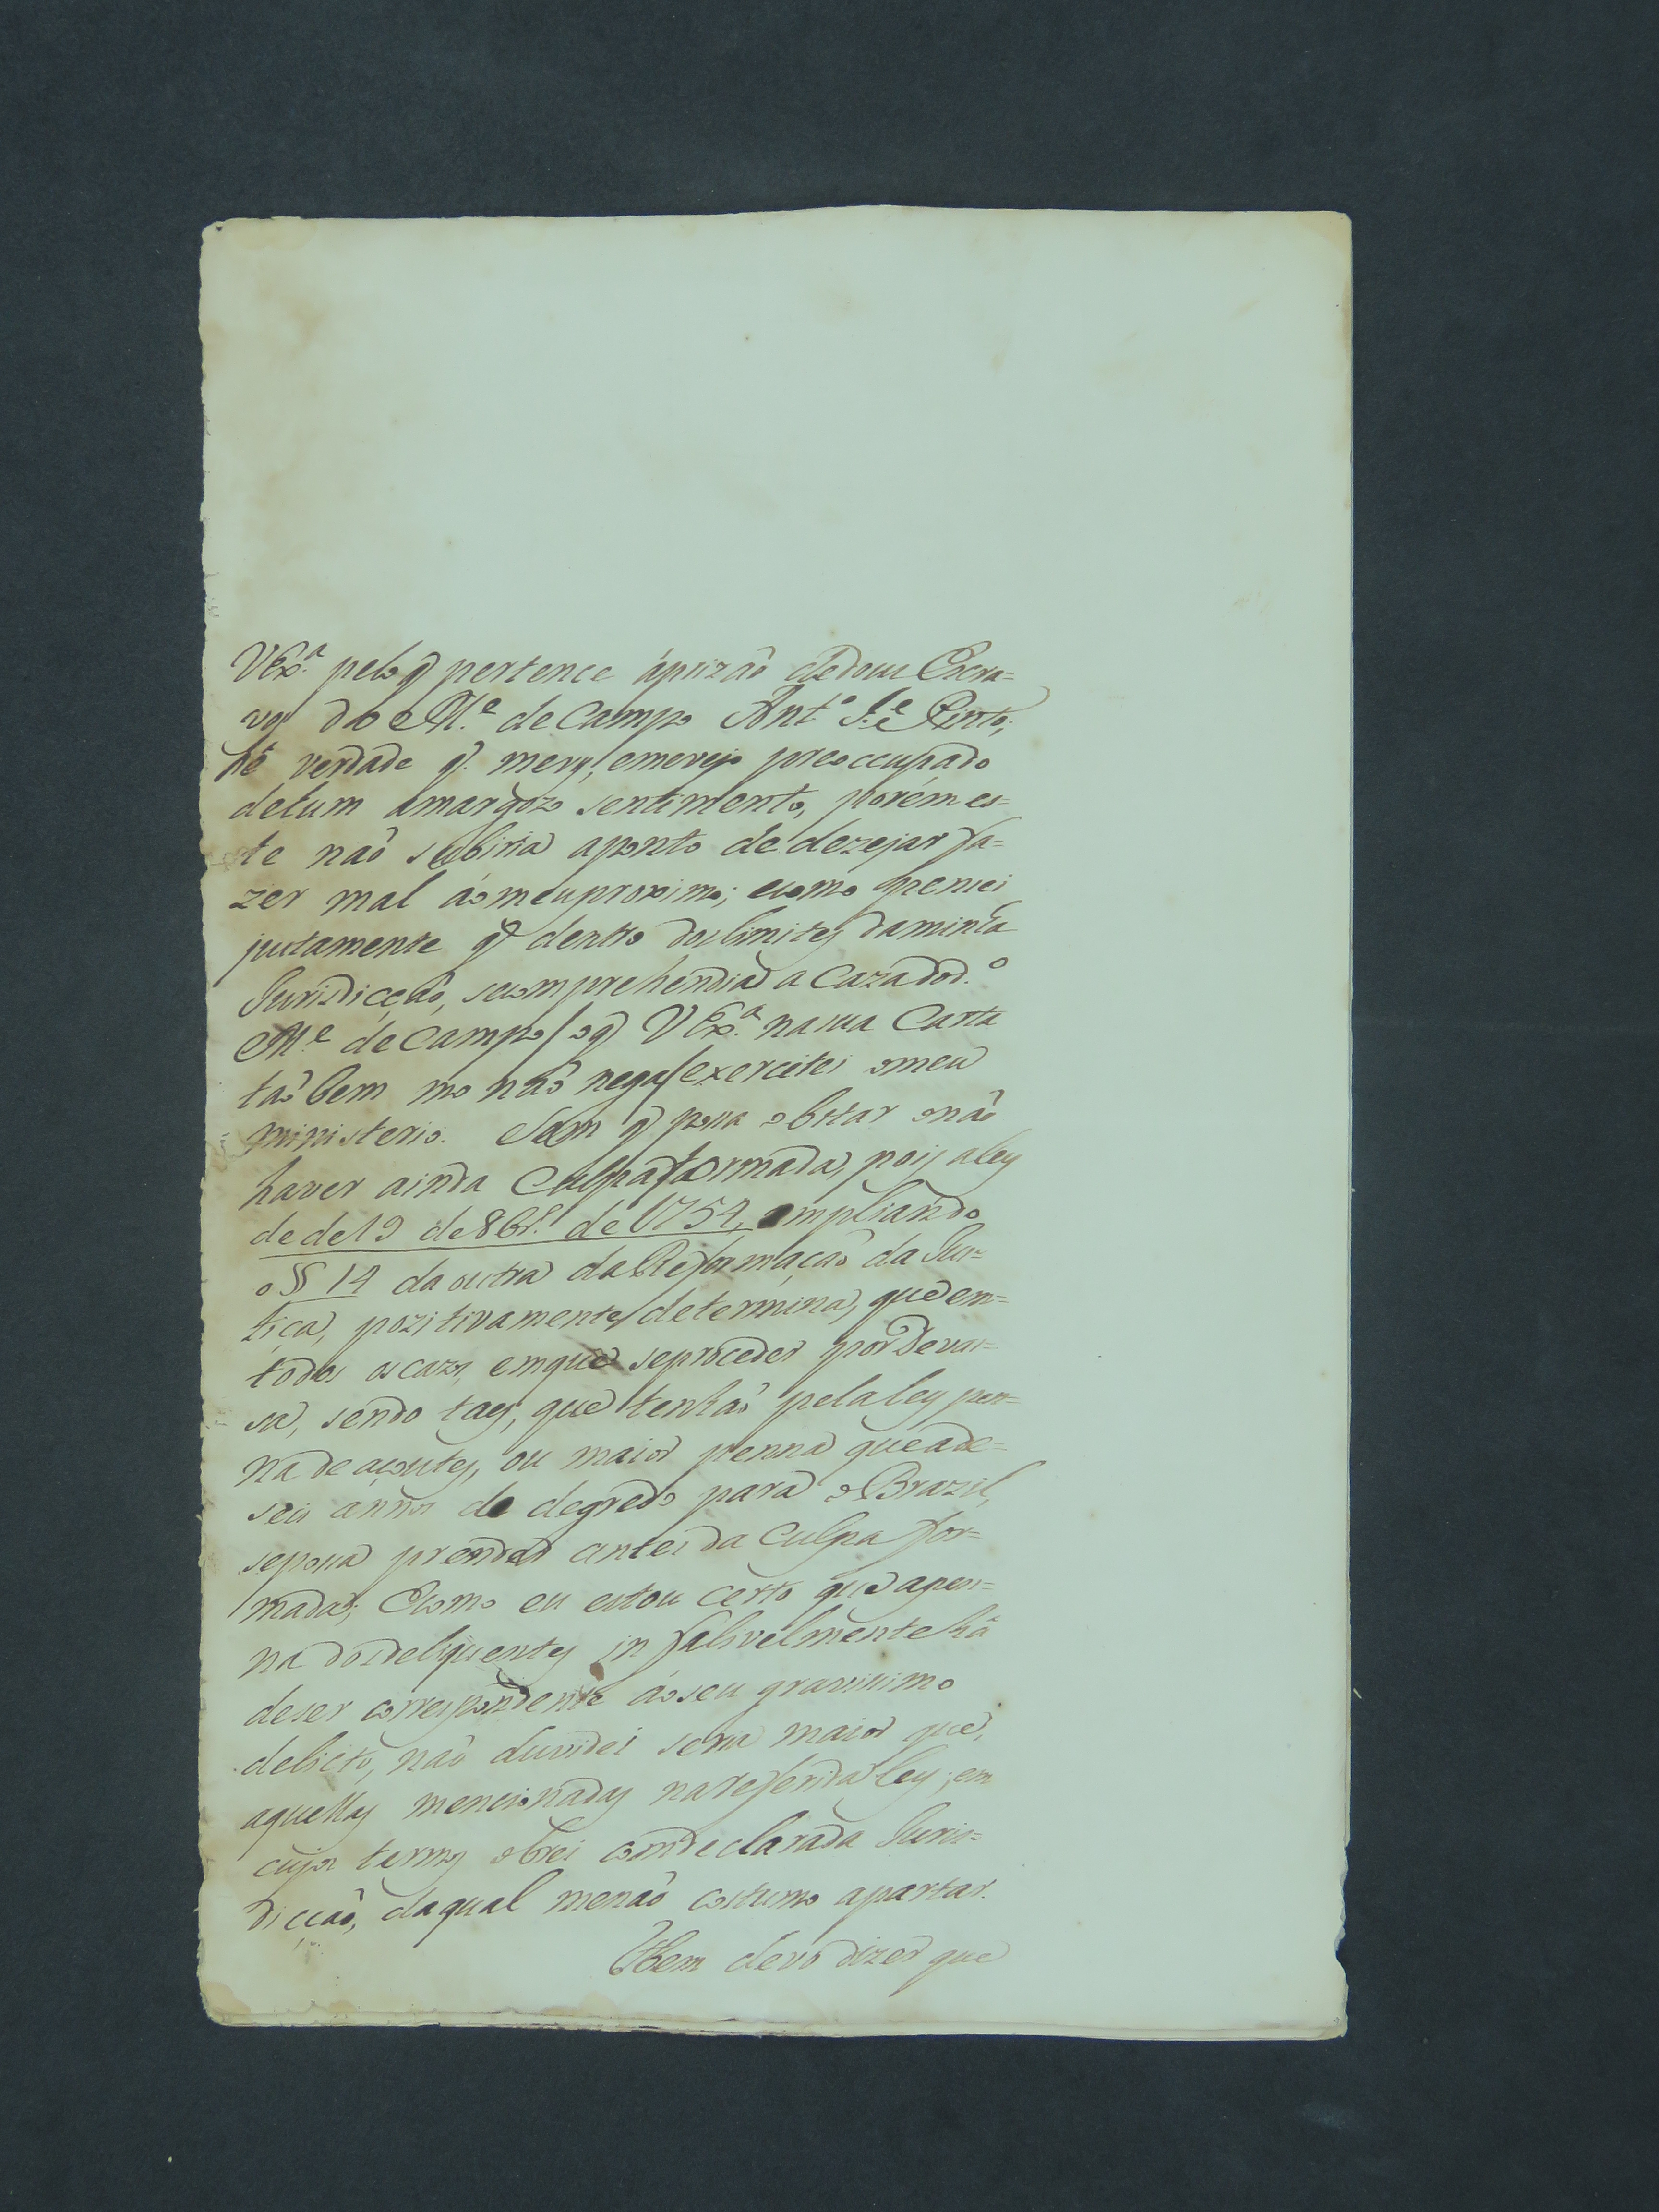 VEx.ª pelo q̃ pertence áprizaõ dedous Escra=
vos do M.e de Campo Ant.º J.e Pinto;
hé verdade q̃. mevy, emevejo preoccupado
dehum amargozo sentimento, porém es=
te naõ subiria aponto de dezejar fa=
zer mal áomeuproximo; ecomo pensei
justamente q̃ dentro dos limites daminha
Jurisdicçaõ, secomprehendia a Cazadod.º
M.e de Campo/oq̃ VEx.ª nasua Carta
taõbem mo naõ nega/exercitei omeu
ministerio. Sem q̃ possa obstar onaõ
haver ainda Culpaformada, pois aley
de de 19 de 8br.º de 1754, ampliando
o § 14 da outra da Reformaçaõ da Jus=
tiça, pozitivamente determina, que em=
todos oscazos, emque seproceder por Devas=
sa, sendo taes, que tenhaõ pela ley pen=
na de açoutes, ou maior penna queade=
seis annos de degredo para o Brazil,
sepossa prender antes da Culpa for=
mada; Ecomo eu estou certo que apen=
na dosdelquentes infalivelmente há
deser correspondente áoseu gravissimo
delicto, naõ duvidei seria maior que,
aquellas mencionadas nareferida ley; em
cujos termos obrei comdeclarada Juris=
dicçaõ, daqual menaõ costumo apartar.
Tbem devo dizer que